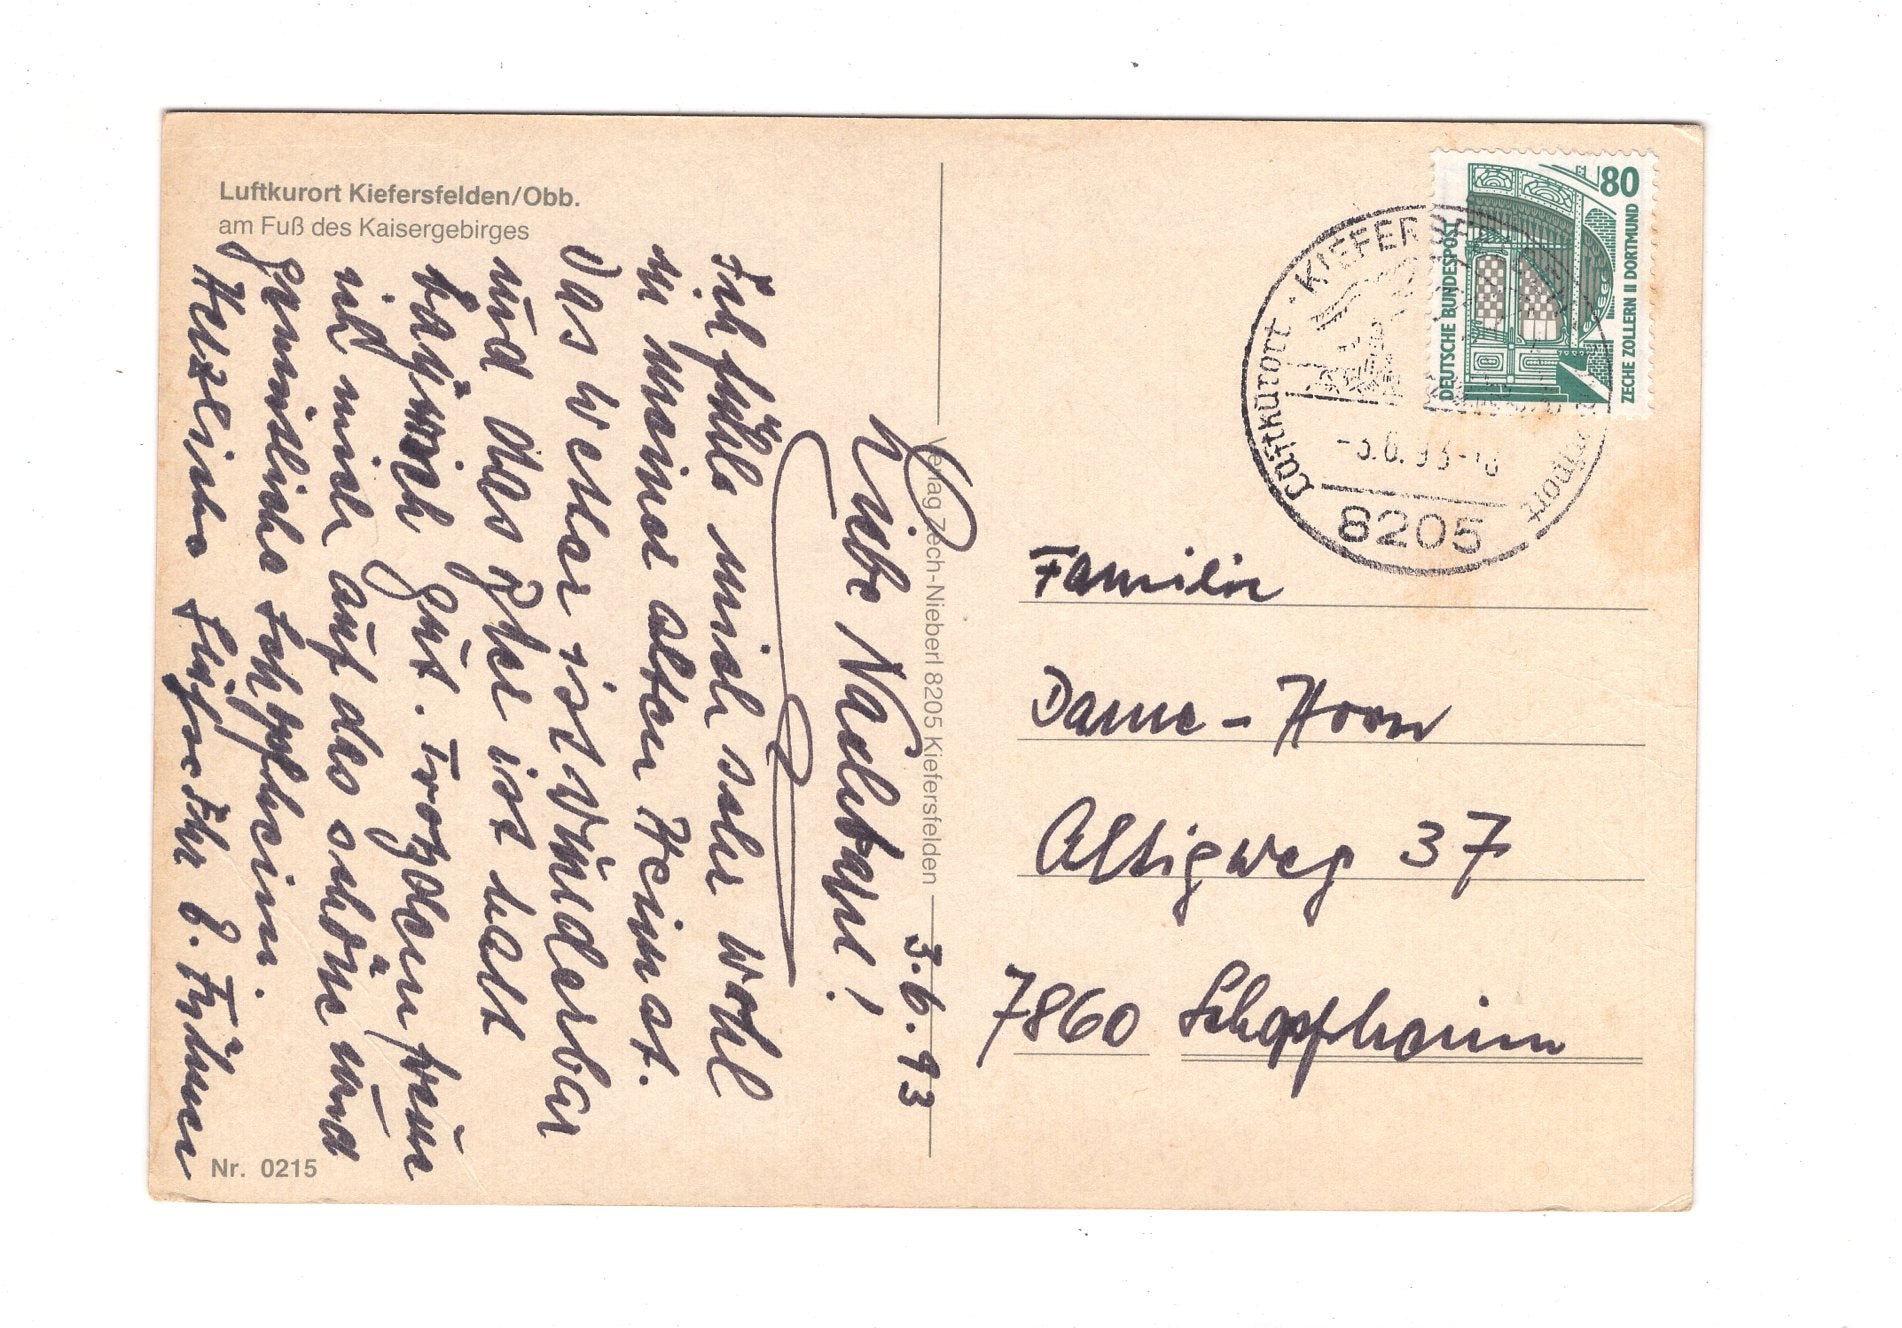 Luftkurort Kiefersfelden/Obb.
am Fuß des Kaisergebirges
3.6.93
Liebe Nachbarn!
Ich fühle mich sehr wohl
in meiner alten Heimat.
Das Wetter ist wunderbar
und das Essen ist halt
bayrisch gut. Trotzdem freue
ich mich auf das schöne und
gemütliche Schopfheim.
Herzliche Grüße Ihr
Nr. 0215
Verlag Zech-Nieberl 8205 Kiefersfelden
DEUTSCHE BUNDESPOST
80
ZECHE ZOLLERN II DORTMUND
Luftkurort · KIEFERSFELDEN
-3.6.93-
8205
Familie
Danne-Horn
Altigweg 37
7860 Schopfheim